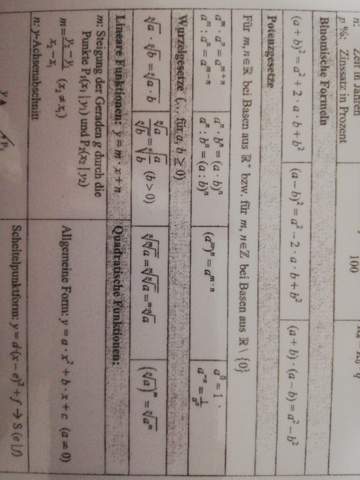 n: Zeit in Jahren
p %: Zinssatz in Prozent
100
Binomische Formeln
(a + b)² = a² + 2 · a · b + b²
(a − b)² = a² − 2 · a · b + b²
(a + b) · (a − b) = a² − b²
Potenzgesetze
Für m, n ∈ ℝ bei Basen aus ℝ⁺ bzw. für m, n ∈ ℤ bei Basen aus ℝ \ {0}
aᵐ · aⁿ = aᵐ⁺ⁿ
aᵐ : aⁿ = aᵐ⁻ⁿ
aⁿ · bⁿ = (a · b)ⁿ
aⁿ : bⁿ = (a : b)ⁿ
(aᵐ)ⁿ = aᵐ·ⁿ
a⁰ = 1
a⁻ⁿ = 1/aⁿ
Wurzelgesetze (... für a, b ≥ 0)
ⁿ√a · ⁿ√b = ⁿ√(a · b)
ⁿ√a / ⁿ√b = ⁿ√(a/b) (b > 0)
Lineare Funktionen: y = m · x + n
Quadratische Funktionen:
m: Steigung der Geraden g durch die
Punkte P₁(x₁ | y₁) und P₂(x₂ | y₂)
m = (y₂ − y₁)/(x₂ − x₁) (x₂ ≠ x₁)
n: y-Achsenabschnitt
Allgemeine Form: y = a · x² + b · x + c (a ≠ 0)
Scheitelpunktform: y = a · (x − e)² + f → S (e | f)